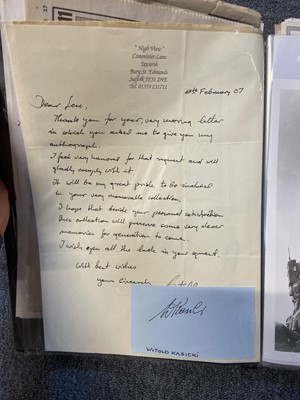 "High View"
Commister Lane
Ixworth
Bury St. Edmunds
Suffolk IP31 2HE
Tel. 01359 231711
February 07
Dear Lee,
Thank you for your very moving letter
in which you asked me to give you my
autograph.
I feel very honoured for that request and will
gladly comply with it.
It will be my great pride to be included
in your very memorable collection.
I hope that beside your personal satisfaction
this collection will preserve some very dear
memories for generation to come.
I wish you all the luck in your quest.
With best wishes
yours sincerely
WITOLD KASICKI